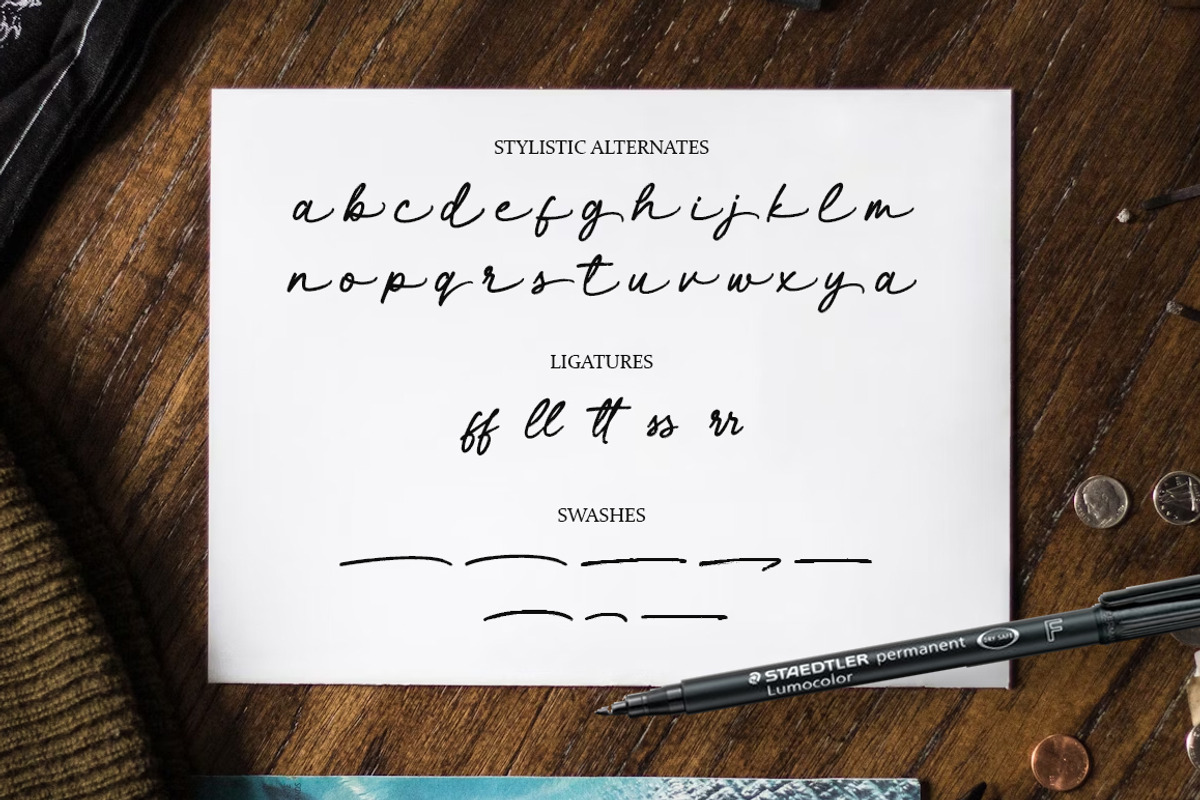 STYLISTIC ALTERNATES
a b c d e f g h i j k l m
n o p q r s t u v w x y a
LIGATURES
ff ll tt ss rr
SWASHES
STAEDTLER permanent DRY SAFE F
Lumocolor